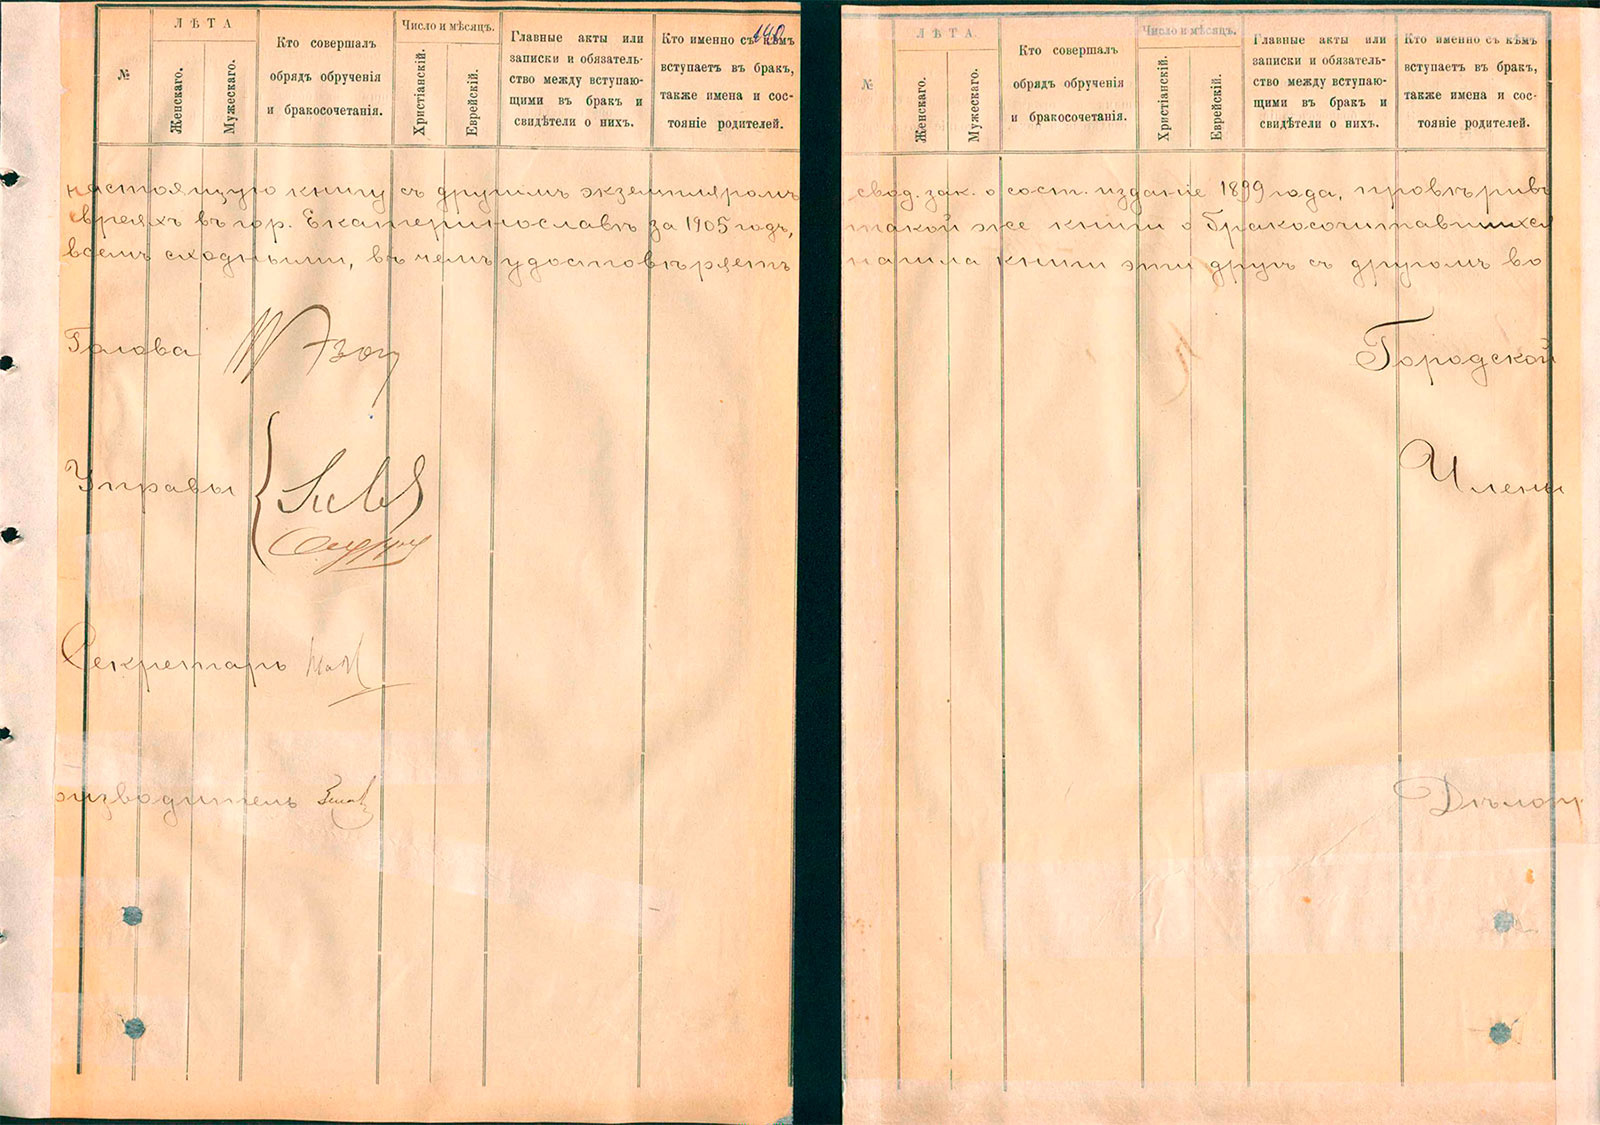 №
ЛѢТА
Женскаго.
Мужескаго.
Кто совершалъ
обрядъ обрученія
и бракосочетанія.
Число и мѣсяцъ.
Христіанскій.
Еврейскій.
Главные акты или
записки и обязатель-
ство между вступаю-
щими въ бракъ и
свидѣтели о нихъ.
Кто именно съ кѣмъ
вступаетъ въ бракъ,
также имена и сос-
тояніе родителей.
настоящую книгу съ другимъ экземпляромъ
евреяхъ въ гор. Екатеринославѣ за 1905 годъ,
всемъ сходными, въ чемъ удостовѣряетъ
Голова
Управы
Секретарь
оизводитель
№
ЛѢТА.
Женскаго.
Мужескаго.
Кто совершалъ
обрядъ обрученія
и бракосочетанія.
Число и мѣсяцъ.
Христіанскій.
Еврейскій.
Главные акты или
записки и обязатель-
ство между вступаю-
щими въ бракъ и
свидѣтели о нихъ.
Кто именно съ кѣмъ
вступаетъ въ бракъ,
также имена и сос-
тояніе родителей.
свод. зак. о сост. изданіе 1899 года, провѣривъ
такой же книги о бракосочитавшихся
нашла книги эти другъ съ другомъ во
Городской
Члены
Дѣлопр